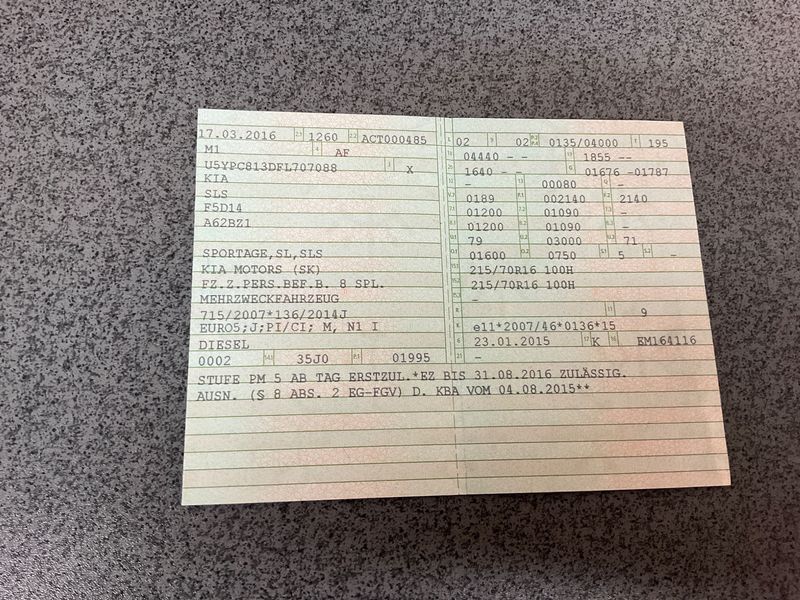 17.03.2016 2.1 1260 2.2 ACT000485
M1 4 AF
U5YPC813DFL707088 3 X
KIA
SLS
F5D14
A62BZ1
SPORTAGE,SL,SLS
KIA MOTORS (SK)
FZ.Z.PERS.BEF.B. 8 SPL.
MEHRZWECKFAHRZEUG
715/2007*136/2014J
EURO5;J;PI/CI; M, N1 I
DIESEL
0002 14.1 35J0 P.1 01995
02 9 02 P.2 P.4 0135/04000 T 195
04440 - - 19 1855 --
1640 - - G 01676 -01787
- 13 00080 Q -
0189 F.1 002140 F.2 2140
01200 01090 -
01200 01090 -
79 U.2 03000 U.3 71
01600 O.2 0750 S.1 5 S.2 -
215/70R16 100H
215/70R16 100H
-
R 11 9
K e11*2007/46*0136*15
6 23.01.2015 17 K 16 EM164116
21 -
STUFE PM 5 AB TAG ERSTZUL.*EZ BIS 31.08.2016 ZULÄSSIG.
AUSN. (§ 8 ABS. 2 EG-FGV) D. KBA VOM 04.08.2015**